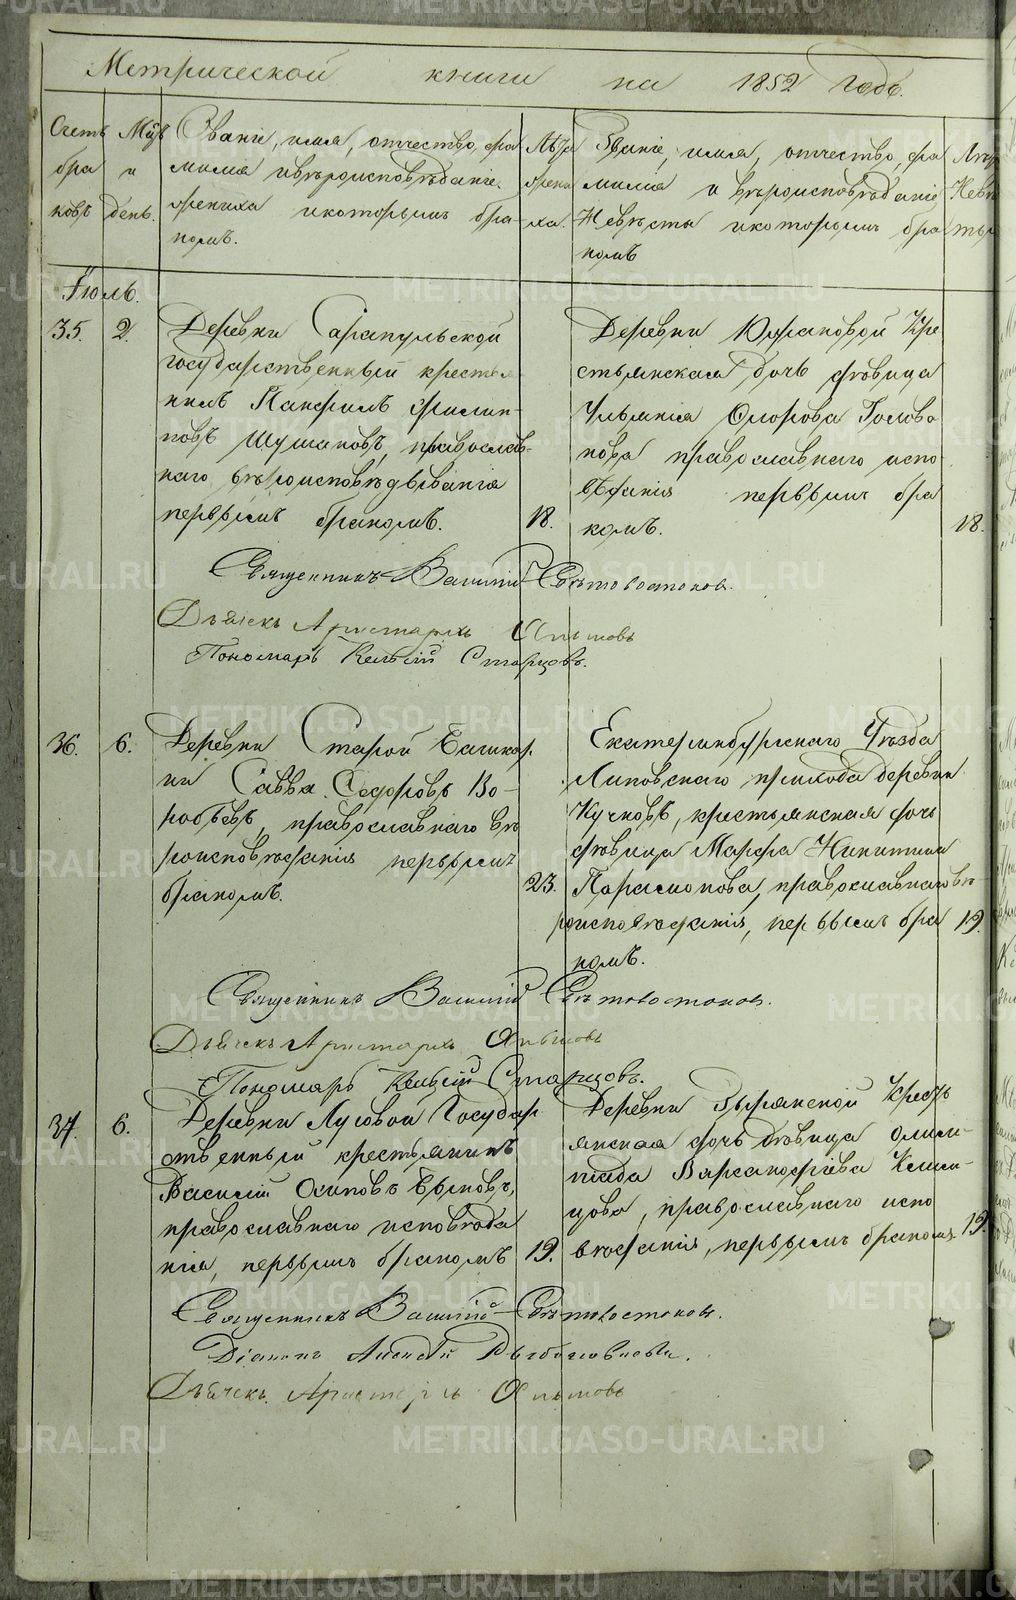 Метрической книги на 1852 годъ.
Счетъ браковъ
Мцъ и день.
Званіе, имя, отчество, фа
милія и вѣроисповѣданіе
жениха и которымъ бра
комъ.
Лѣта жениха.
Званіе, имя, отчество, фа
милія и вѣроисповѣданіе
Невѣсты и которымъ бра
комъ
Лѣт Невѣсты
Іюль.
35. 2.
Деревни Сарапульской
государственный крестья
нинъ Панфилъ Филип-
повъ Шушаковъ, православ-
наго вѣроисповѣдыванія
первымъ бракомъ. 18.
Деревни Южаковой Кре
стьянская дочь дѣвица
Ульянія Голово
кова православнаго испо
вѣданія первымъ бра
комъ. 18.
Священникъ Василій Свѣтовостоковъ.
Дьячекъ Аристархъ
Пономарь Старцовъ.
36. 6.
Деревни Старой Башкар
ки Савва Федоровъ Во-
робьевъ, православнаго вѣ
роисповѣданія первымъ
бракомъ. 23.
Екатеринбургскаго Уѣзда
Липовскаго прихода деревни
Кучковъ, крестьянская дочь
дѣвица Марфа Никитина
Парамонова, православнаго вѣ-
роисповѣданія, первымъ бра 19.
комъ.
Священникъ Василій Свѣтовостоковъ.
Дьячекъ Аристархъ
Пономарь Старцовъ.
37. 6.
Деревни Луговой Государ
ственный крестьянинъ
Василій Осиповъ Быковъ,
православнаго исповѣда
нія, первымъ бракомъ 19.
Деревни Зырянской Кресть
янская дочь дѣвица Олим-
піада Варѳаломѣева Клим-
цова, православнаго испо
вѣданія, первымъ бракомъ 19.
Священникъ Василій Свѣтовостоковъ.
Діаконъ Алексѣй
Дьячекъ Аристархъ
METRIKI.GASO-URAL.RU